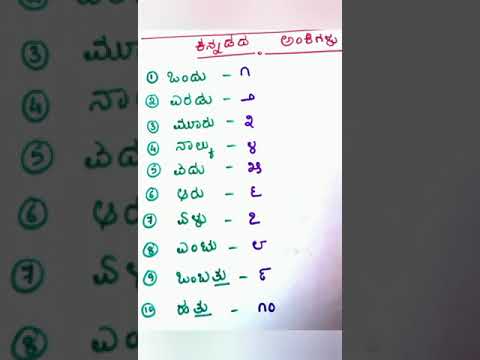 ಕನ್ನಡದ ಅಂಕಿಗಳು
1 ಒಂದು - ೧
2 ಎರಡು - ೨
3 ಮೂರು - ೩
4 ನಾಲ್ಕು - ೪
5 ಐದು - ೫
6 ಆರು - ೬
7 ಏಳು - ೭
8 ಎಂಟು - ೮
9 ಒಂಬತ್ತು - ೯
10 ಹತ್ತು - ೧೦